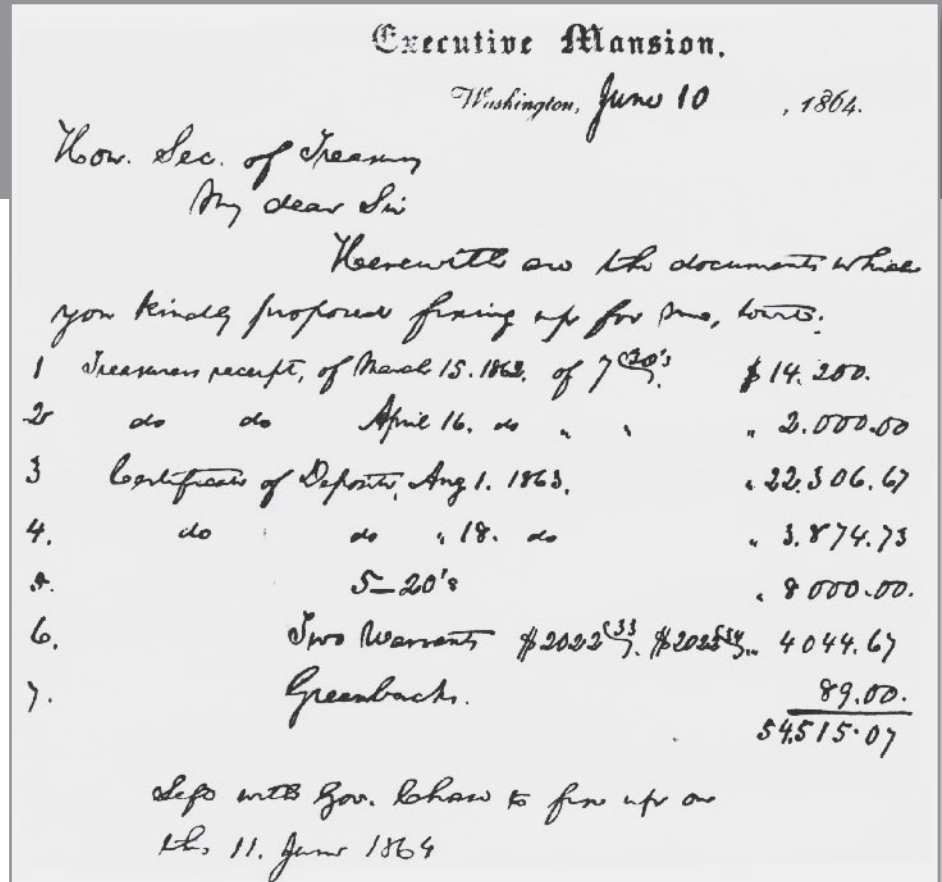 Executive Mansion,
Washington, June 10, 1864.
Hon. Sec. of Treasury
My dear Sir
Herewith are the documents which
you kindly proposed fixing up for me, towit:
1 Treasurers receipt, of March 15. 1862, of 7 (30's). $14.200.
2 do do April 16. do " " " 2.000.00
3 Certificate of Deposite, Aug 1. 1863, " 22.306.67
4. do do " 18. do " 3.874.73
5. 5–20's " 8000.00.
6. Two Warrants $2022(33). $2022(34) " 4044.67
7. Greenbacks. 89.00.
54,515.07
Left with Gov. Chase to fix up on
this 11. June 1864